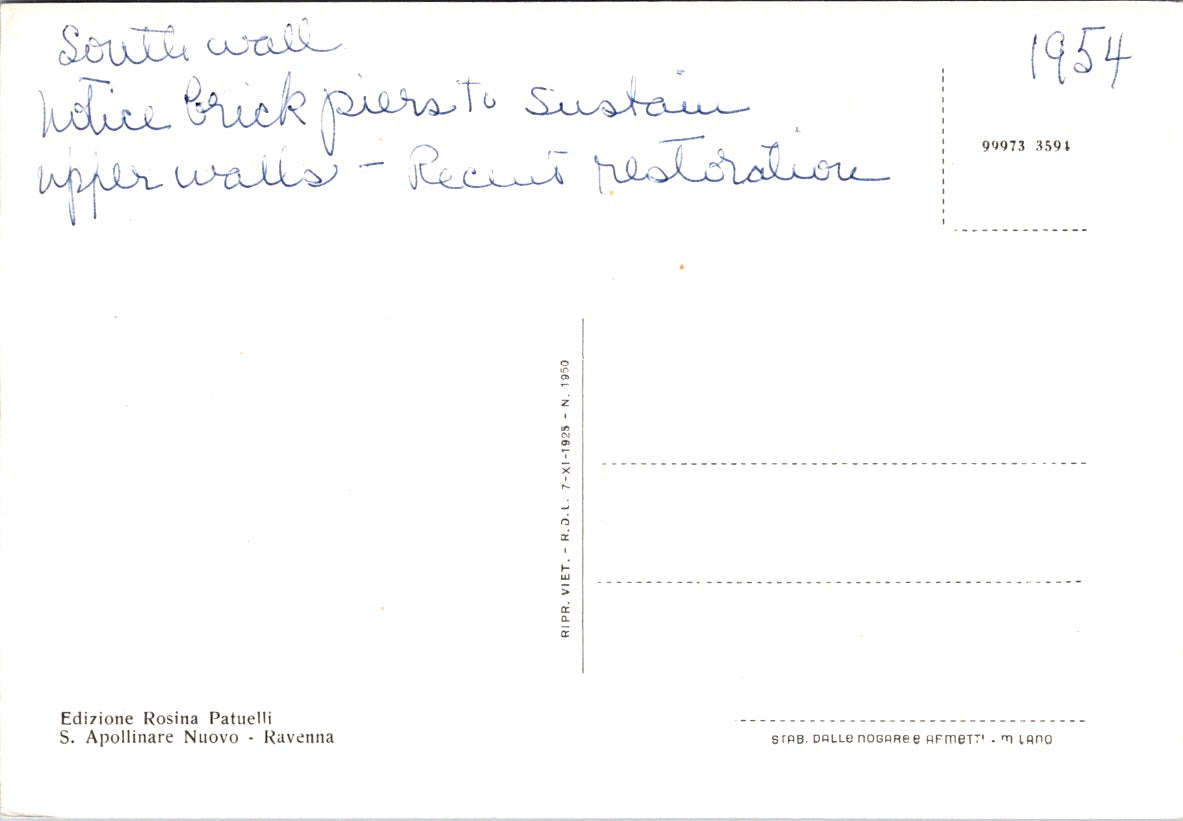 South wall
1954
Notice brick piers to sustain
upper walls - Recent restoration
99973 3591
RIPR. VIET. - R.D.L. 7-XI-1925 - N. 1950
Edizione Rosina Patuelli
S. Apollinare Nuovo - Ravenna
STAB. DALLE NOGARE E ARMETTI - MILANO